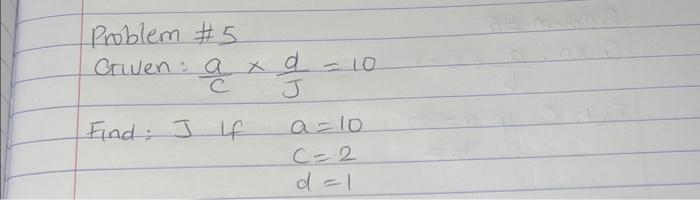 Problem #5
Given: a/c × d/J = 10
Find: J If a=10
c=2
d=1